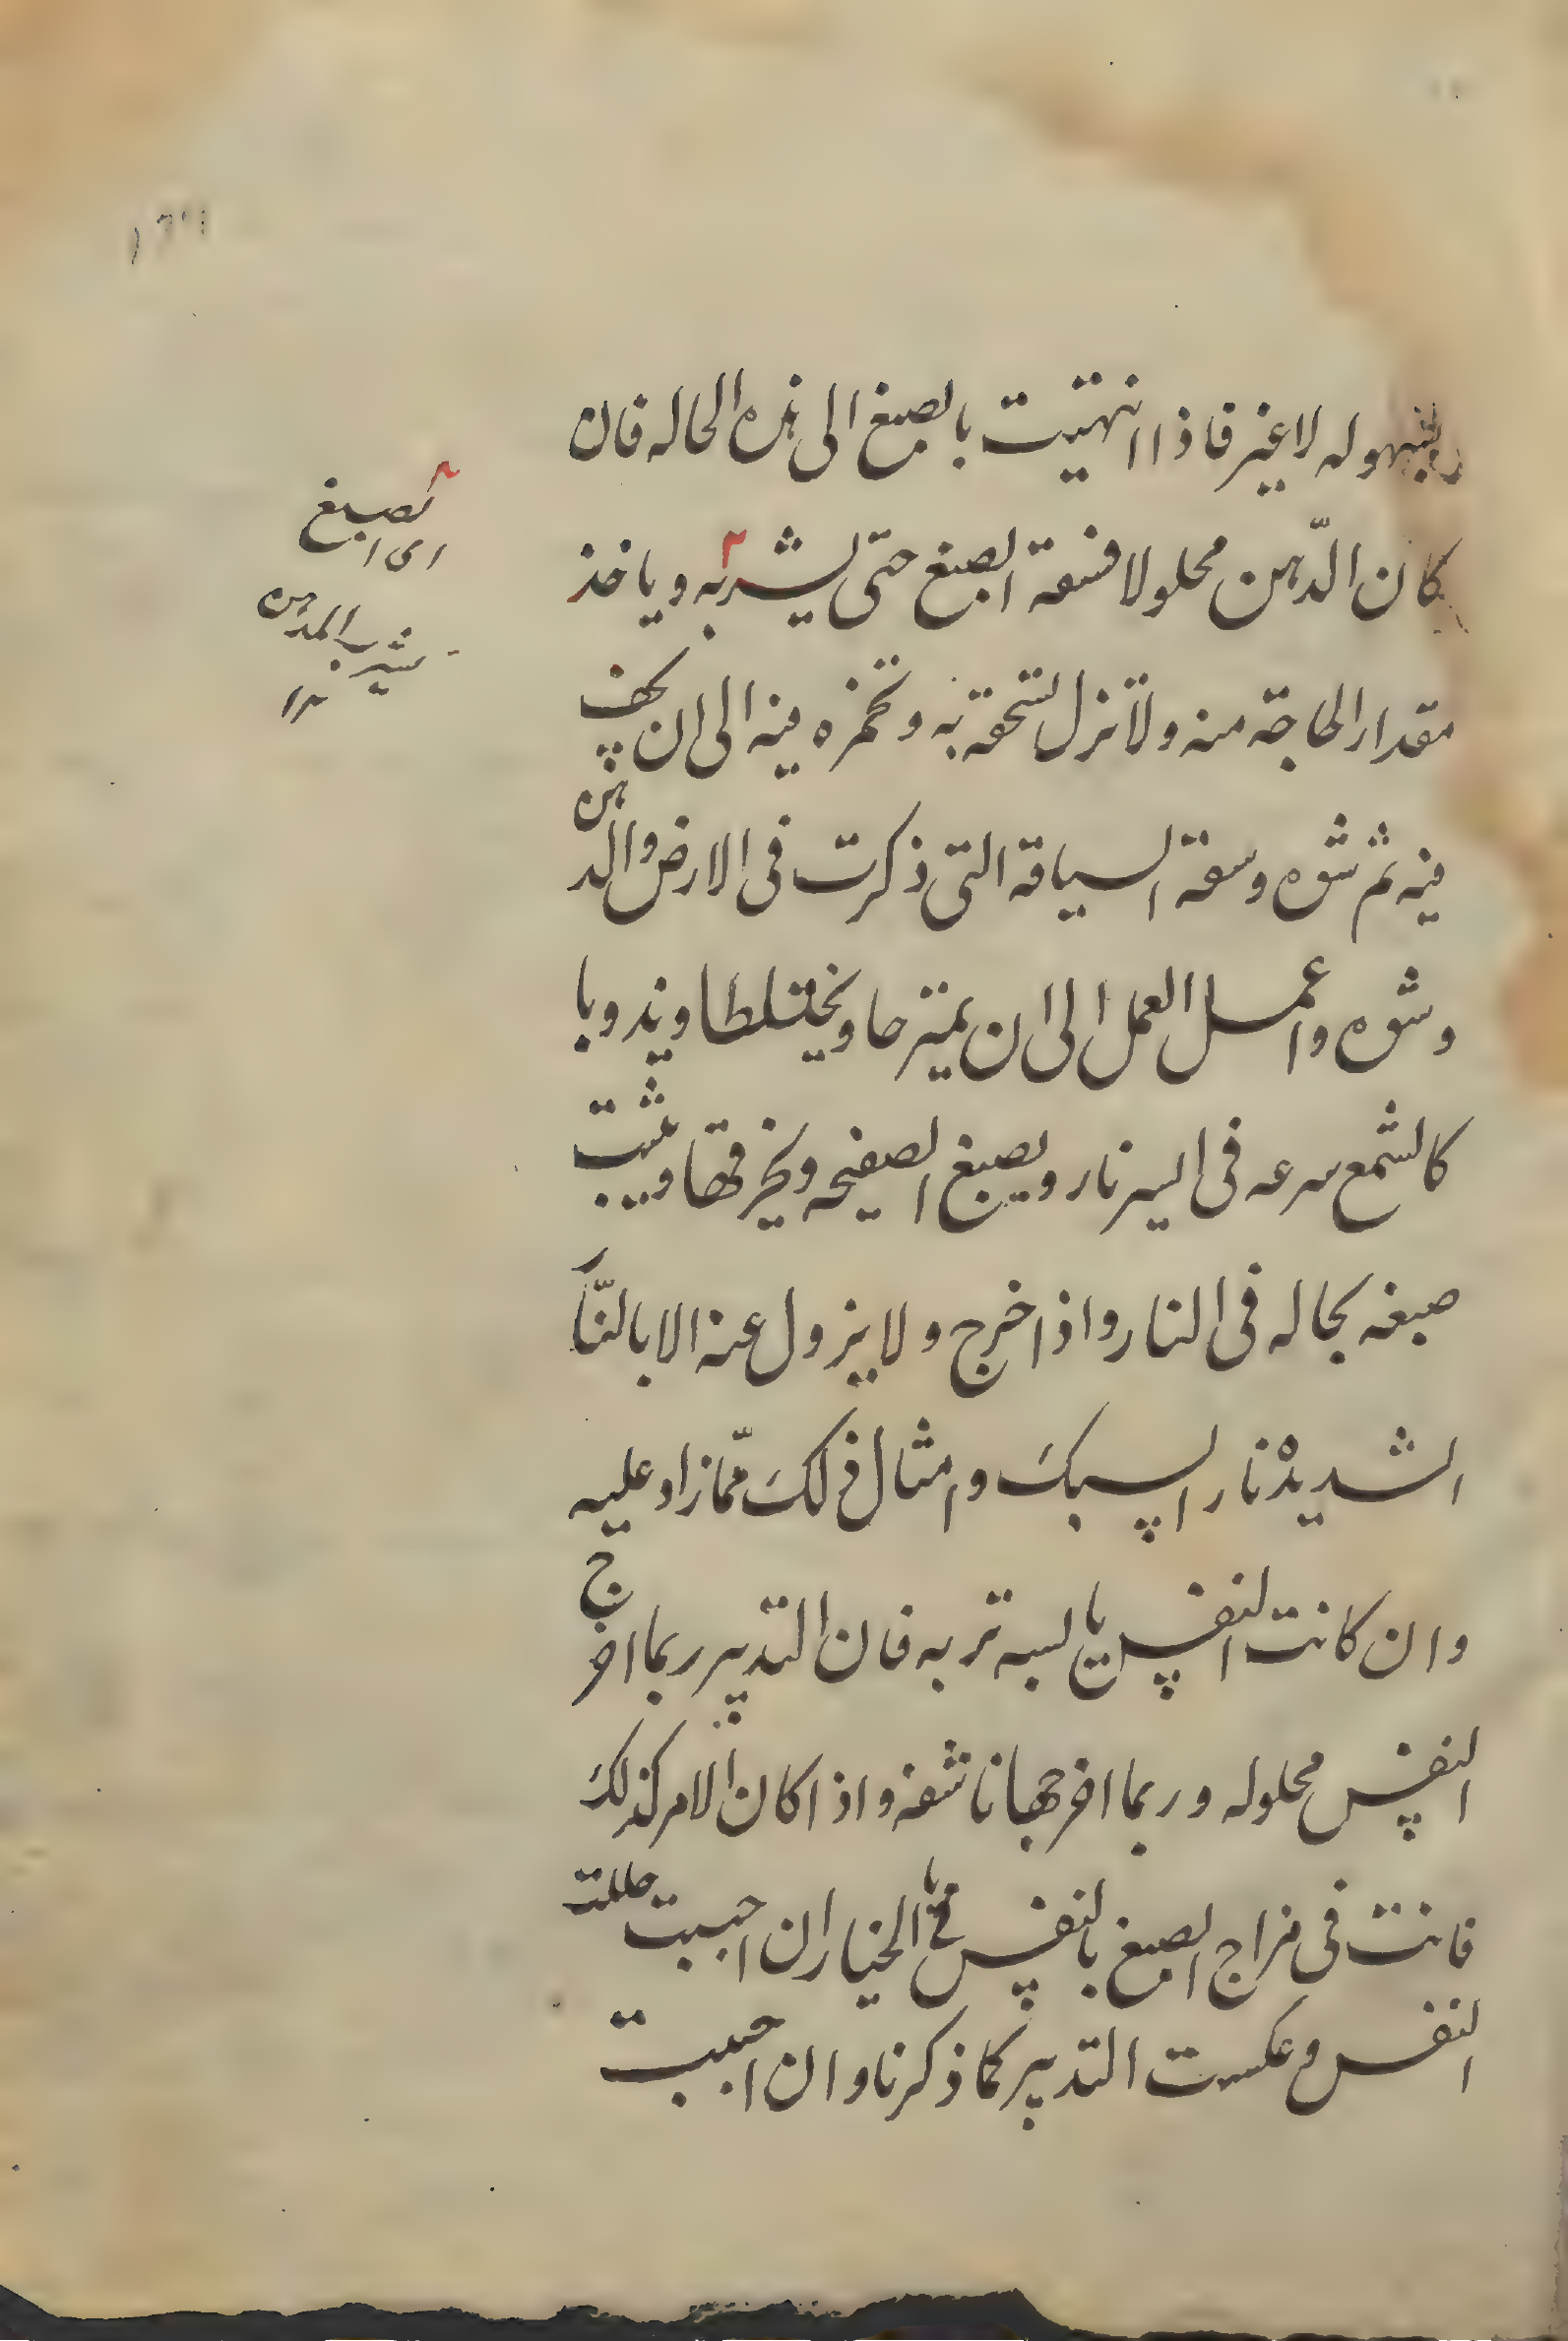 لسهوله لا غير فاذا انتهيت بالصبغ الى هذه الحاله فان
كان الدّهن محلولا فسقه الصبغ حتّى يشربه وياخذ
مقدار الحاجة منه ولا تزل تسحقه به وتخمره فيه الى ان يجف
فيه ثم شوه وسقه السياقه التى ذكرت فى الارض والدهن
وشوه واعمل العمل الى ان يمتزجا ويختلطا ويذوبا
كالشمع سرعه فى ايسر نار ويصبغ الصفيحه ويخرقها ويثبت
صبغه بحاله فى النار واذا خرج ولا يزول عنه الا بالنّار
الشديده نار السبك وامثال ذلك ممّا زاد عليه
وان كانت النفس يابسه تربه فان التدبير ربما اخرج
النفس محلوله وربما اخرجها ناشفه واذا كان الامر كذلك
فانت فى مزاج الصبغ بالنفس بالخيار ان احببت حللت
النفس وعكست التدبير كما ذكرنا وان احببت
الصبغ
اى
يشرب الدهن
١٢